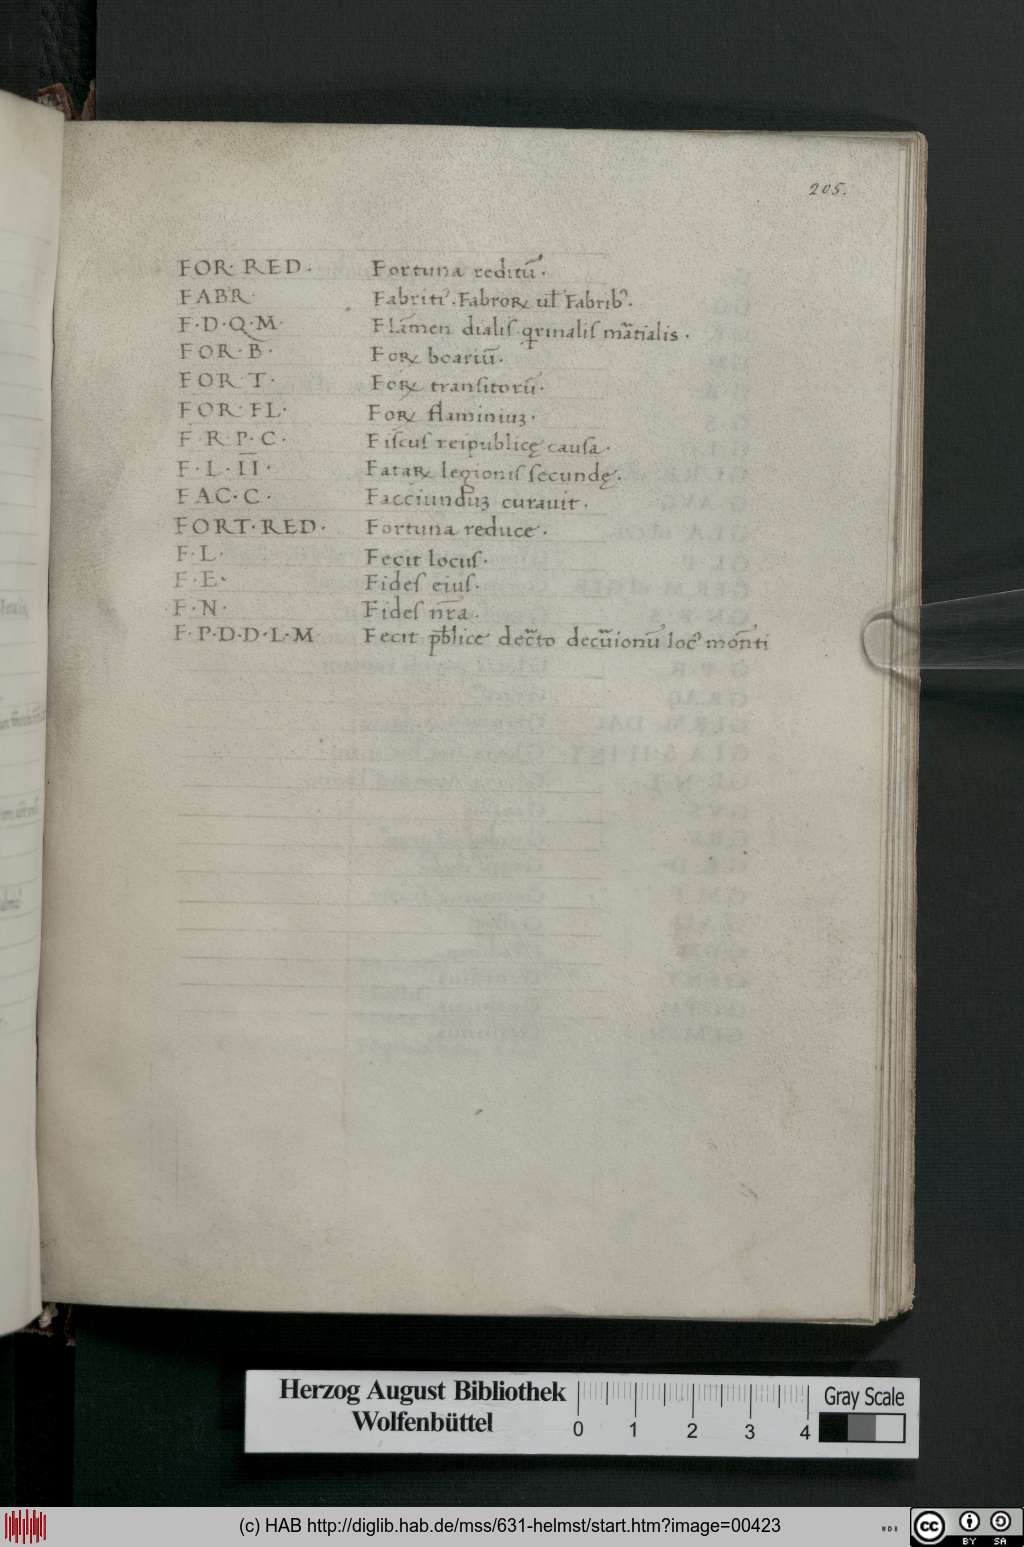 205.
FOR· RED· Fortuna reditū·
FABR· Fabriti᾽·Fabroꝝ ul̄ Fabrib᾽·
F·D·Q·M· Flamen dialiſ·qrinalif mr̄tialis·
FOR·B· Foꝝ boariū·
FOR T· Foꝝ tranſitoriū·
FOR·FL· Foꝝ flaminiuꝫ·
F·R·P·C· Fiſcuſ reipublicę cauſa·
F·L·I̅I̅· Fataꝝ legioniſ ſecundę·
FAC·C· Facciunduꝫ curauit·
FORT·RED· Fortuna reduce·
F·L· Fecit locuſ·
F·E· Fideſ eiuſ·
F·N· Fideſ nr̄a·
F·P·D·D·L·M Fecit pb̄lice dec̄to decūionū loc᾽ mōnti
Herzog August Bibliothek
Wolfenbüttel
0 1 2 3 4
Gray Scale
(c) HAB http://diglib.hab.de/mss/631-helmst/start.htm?image=00423
WDB
cc BY SA